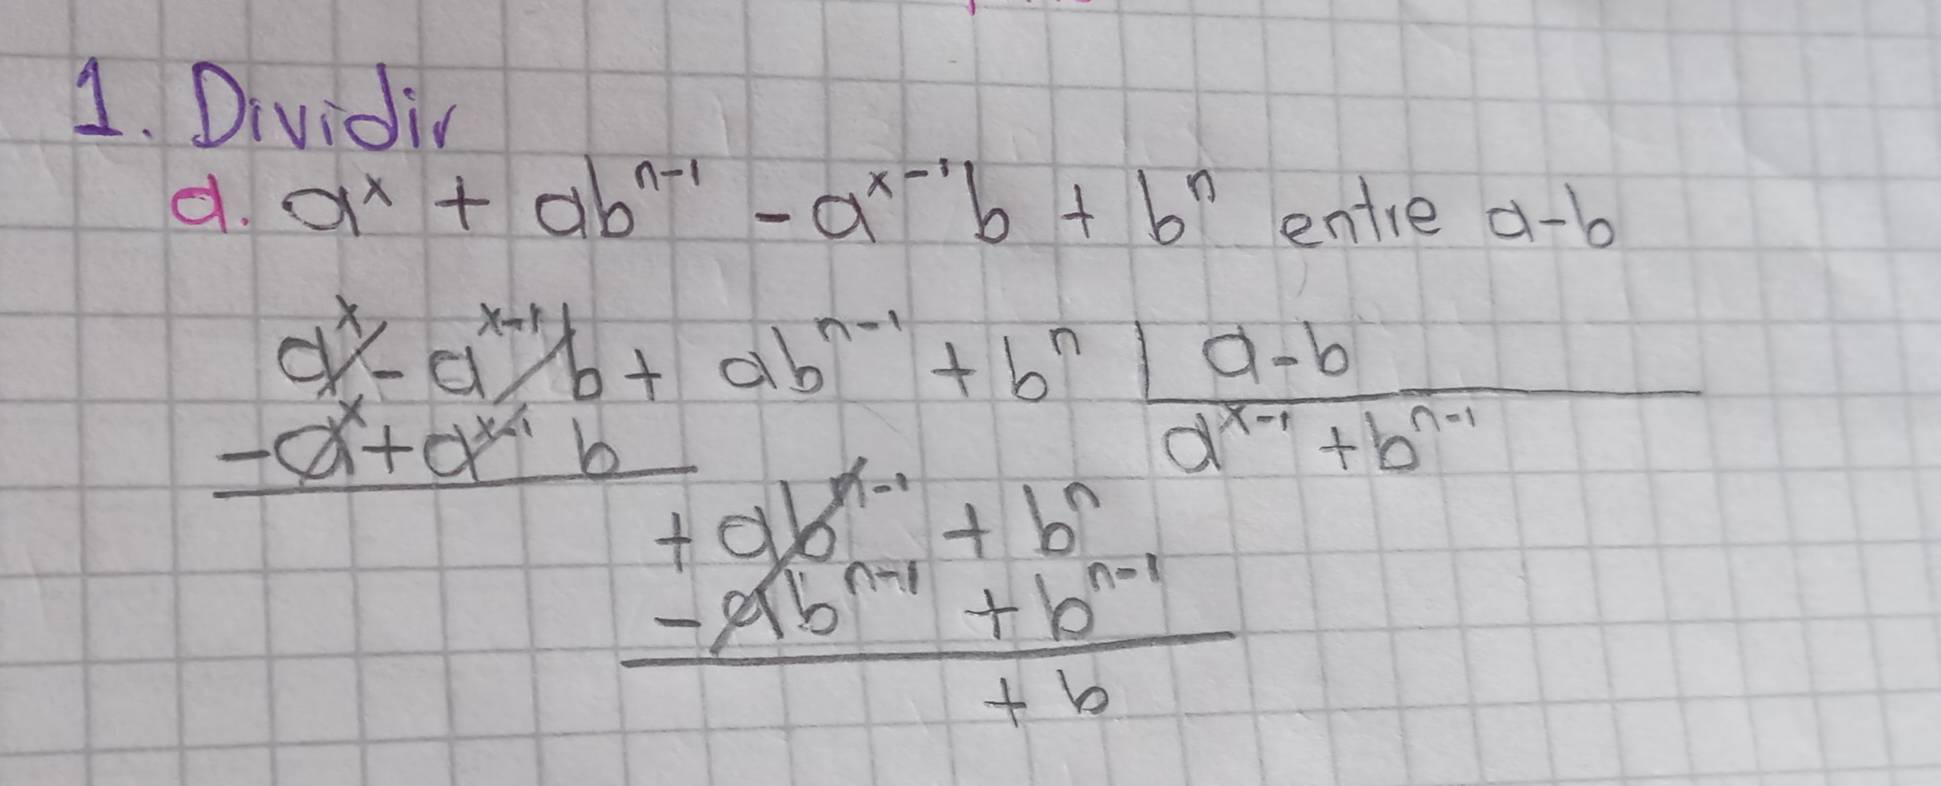 1. Dividir
a. aˣ + abⁿ⁻¹ - aˣ⁻¹b + bⁿ entre a-b
aˣ - aˣ⁻¹b + abⁿ⁻¹ + bⁿ | a-b
-aˣ + aˣ⁻¹ b aˣ⁻¹ + bⁿ⁻¹
+ abⁿ⁻¹ + bⁿ
- abⁿ⁻¹ + bⁿ⁻¹
+ b